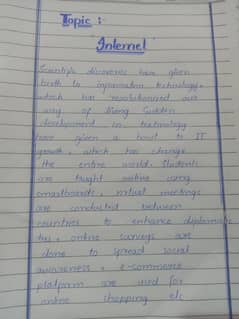 Topic :
Internet
Scientific discoveries have given
birth to information technology,
which has revolutionized our
way of living Sudden
development in technology
have given a boost to IT
growth, which has change
the entire world. Students
are taught online using
smartboards, virtual meetings
are conducted between
countries to enhance diplomatic
ties, online surveys are
done to spread social
awareness, e-commerce
platform are used for
online shopping etc